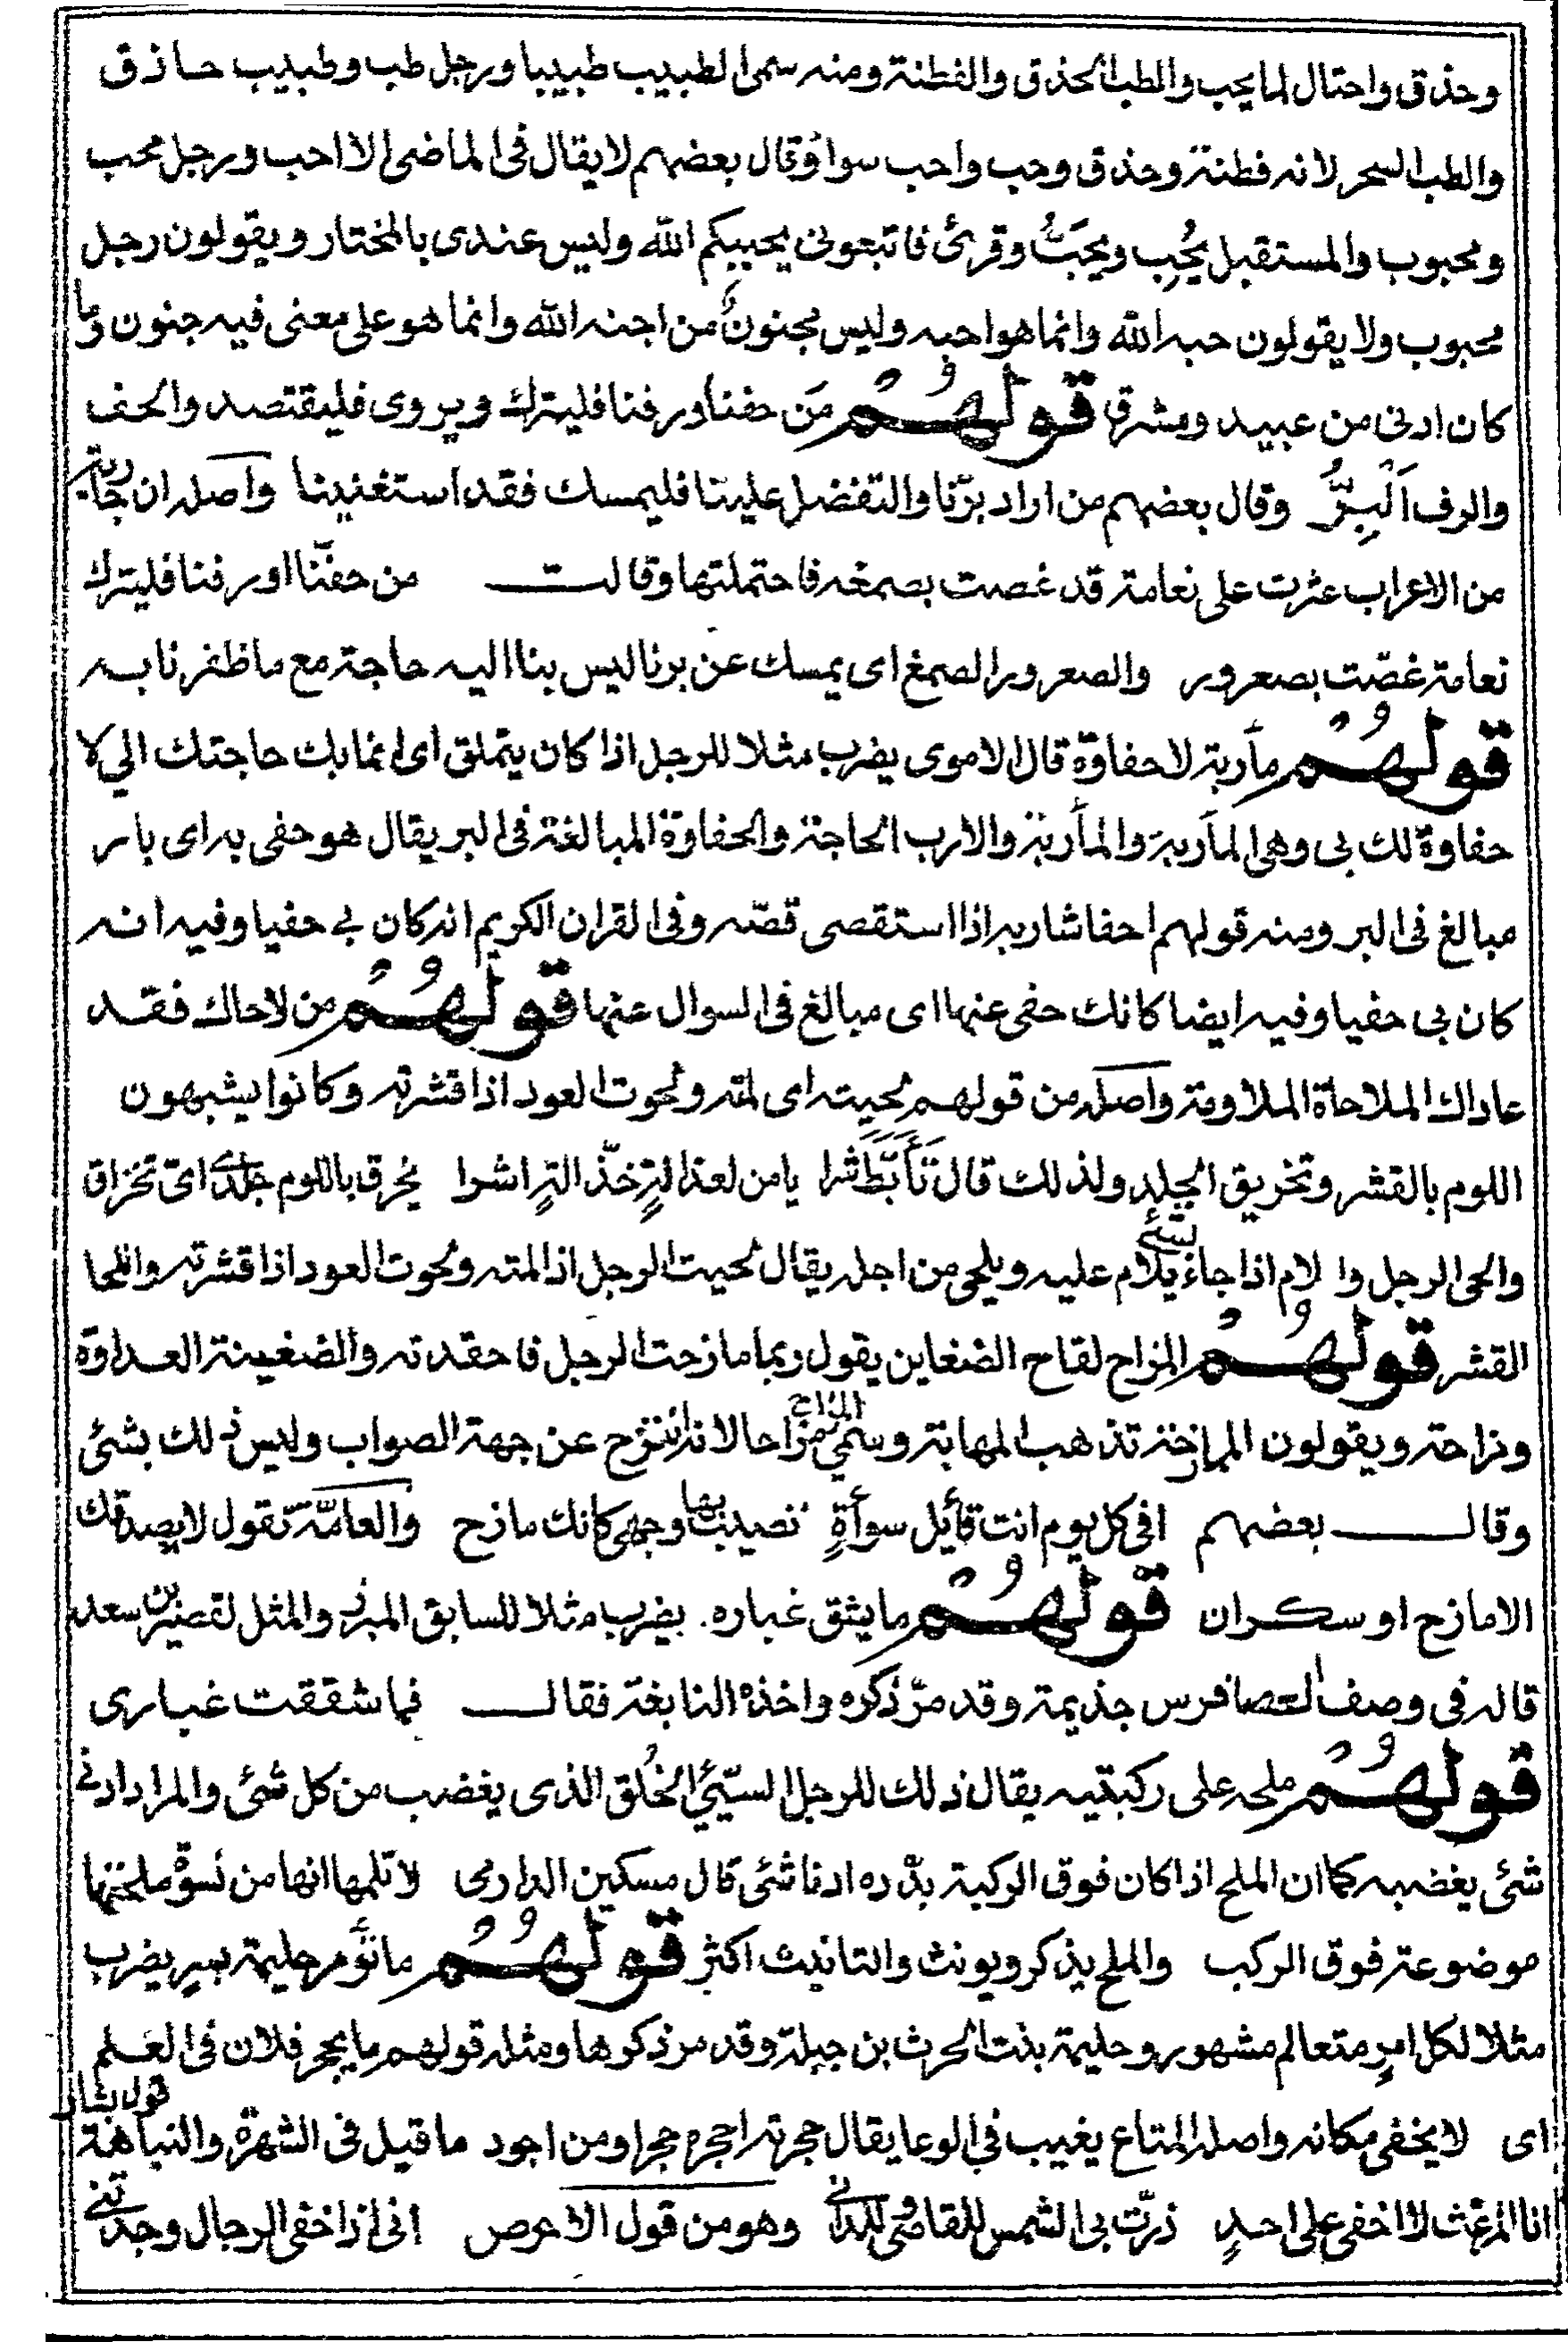 وحذق واحتال لما يحب والطب الحذق والفطنة ومنه سمى الطبيب طبيبا ورجل طب وطبيب حاذق
والطب السحر لانه فطنة وحذق وحب واحب سواء وقال بعضهم لا يقال فى الماضى الا احب ورجل محب
ومحبوب والمستقبل يُحِب ويحَبُّ وقرئ فاتبعونى يحببكم الله وليس عندى بالمختار ويقولون رجل
محبوب ولا يقولون حبه الله وانما هو احبه وليس مجنون من اجنه الله وانما هو على معنى فيه جنون وما
كان ادنى من عبيد ومشرق قولهُم مَن حفنا اورفنا فليترك ويروى فليقتصد والحف
والرف اَلْبِرُّ وقال بعضهم من اراد برّنا والتفضل علينا فليمسك فقد استغنينا واصله ان جارية
من الاعراب عثرت على نعامة قد غصت بصمغه فاحتملتها وقالت من حفّنا اورفنا فليترك
نعامة غصّت بصعرور والصعرور الصمغ اى يمسك عن برنا ليس بنا اليه حاجة مع ما ظفرنا به
قولهُم مأربة لا حفاوة قال الاموى يضرب مثلا للرجل اذا كان يتملق اى انما بك حاجتك الي لا
حفاوة لك بى وهى المأربة والمأربة والارب الحاجة والحفاوة المبالغة فى البر يقال هو حفى به اى بار
مبالغ فى البر ومنه قولهم احفا شاربه اذا استقصى قصّه وفى القران الكريم انه كان بي حفيا وفيه انه
كان بى حفيا وفيه ايضا كانك حفى عنها اى مبالغ فى السوال عنها قولهُم من لاحاك فقد
عاداك الملاحاة الملاومة واصله من قولهم لحيته اى لمته ولحوت العود اذا قشرته وكانوا يشبهون
اللوم بالقشر وتخريق الجلد ولذلك قال تَأَبَّطَ شرا يا من لعذالةٍ خذّالةٍ اشرا يحرق باللوم جلدى اى تخراق
والحى الرجل والام اذا جاء بشئ يلام عليه ويلحى من اجله يقال لحيت الرجل اذا لمته ولحوت العود اذا قشرته واللحا
القشر قولهُم المزاح لقاح الضغاين يقول ربما مازحت الرجل فاحقدته والضغينة العداوة
ومزاحته ويقولون الممازحة تذهب المهابة وسمى المزاح مزاحا لانه ازيح عن جهة الصواب وليس ذلك بشئ
وقال بعضهم افى كل يوم انت قائل سوأةٍ تصيب بها وجهى كانك مازح والعامّة تقول لا يصدقك
الا مازح او سكران قولهُم ما يشق غباره. يضرب مثلا للسابق المبرز والمثل لقصير بن سعد
قاله فى وصف العصا فرس جذيمة وقد مرّ ذكره واخذه النابغة فقال فما شققت غبارى
قولهُم ملحه على ركبتيه يقال ذلك للرجل السيّئ الخُلق الذى يغضب من كل شئ والمراد ادنى
شئ يغضبه كما ان الملح اذا كان فوق الركبة بدّده ادنا شئ قال مسكين الدارمى لا تلمها انها من نسوة ملحها
موضوعة فوق الركب والملح يذكر ويونث والتانيث اكثر قولهُم ما يَوم حليمة بسرٍ يضرب
مثلا لكل امرٍ متعالم مشهور وحليمة بنت الحرث بن جبلة وقد مر ذكرها ومثله قولهم ما يحجر فلان فى العلم
اى لا يخفى مكانه واصله المتاع يغيب فى الوعا يقال حجرته احجره حجرا ومن اجود ما قيل فى الشهرة والنباهة قول بشار
انا المرعّث لا اخفى على احدٍ ذرّت بى الشمس للقاصى وللدانى وهو من قول الاحوص انى اذا خفى الرجال وجدتنى